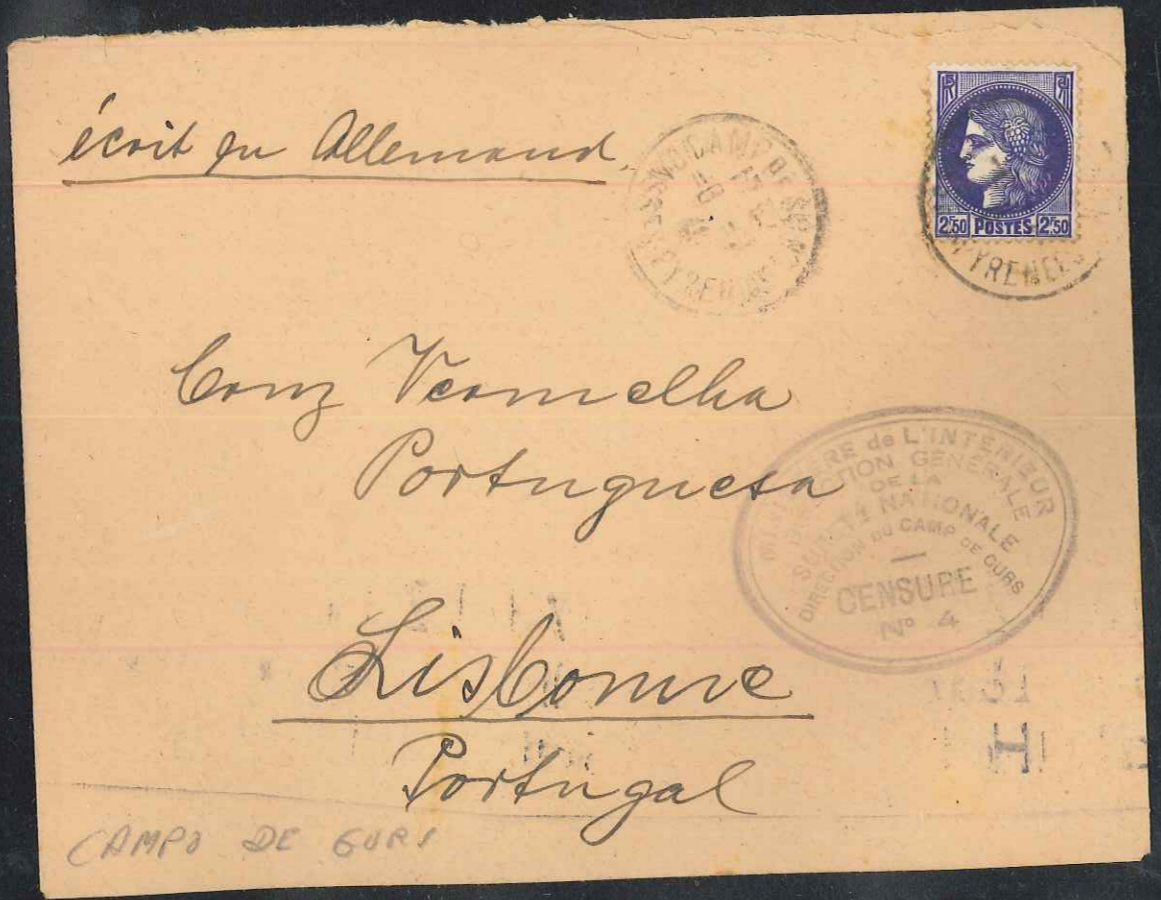 écrit en Allemand.
CAMP DE GURS
Bses PYRENEES
RF
2F50 POSTES 2F50
PYRENEES
Cruz Vermelha
Portuguesa
MINISTÈRE de L'INTÉRIEUR
DIRECTION GÉNÉRALE
DE LA
SURETÉ NATIONALE
DIRECTION DU CAMP DE GURS
CENSURE
No 4
Lisbonne
Portugal
CAMPO DE GURS